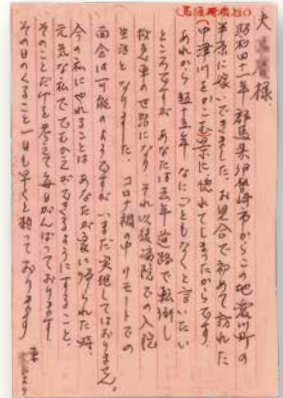 夫 様
昭和四十一年 群馬県伊勢崎市からこの地愛川町の
半原に嫁いできました。お見合で初めて訪れた
中津川をかこむ景に惚れてしまったからです。
あれから五十五年 なにごともなくと言いたい
ところですが あなたは去年 道路で転倒し
救急車の世話になり それ以後病院での入院
生活となりました。コロナ禍の中 リモートでの
面会は可能のようですが いまだ実現しておりません。
今の私にやれることは あなたが家に帰られた時、
元気な私でむかえができるようにすること、
そのことだけを考えて毎日がんばっております
その日のくること一日も早くと願っております
妻 より